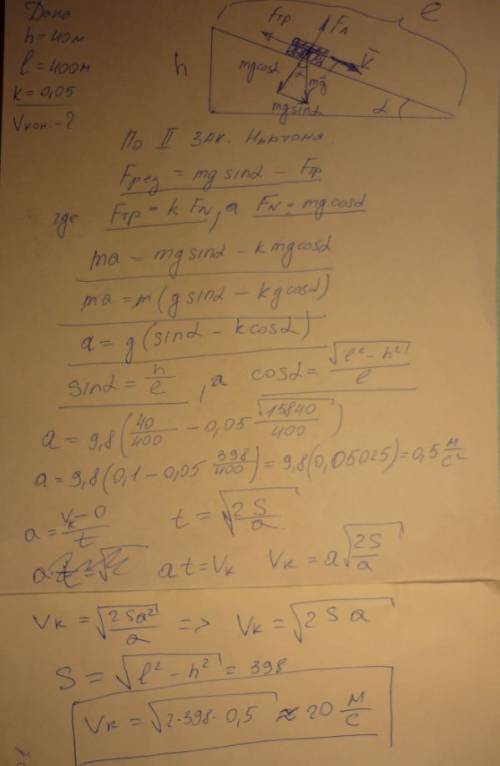 Дано
h = 40м
l = 400м
k = 0,05
Vкон. - ?
h
l
Fтр
FN
V
mgcosα
α
mg
mgsinα
α
По II зак. Ньютона
Fрез = mg sinα - Fтр
где Fтр = k FN, а FN = mg cosα
ma = mg sinα - k mg cosα
ma = m(g sinα - kg cosα)
a = g(sinα - k cosα)
sinα = h/l, а cosα = √(l² - h²)/l
a = 9,8(40/400 - 0,05 √15840/400)
a = 9,8(0,1 - 0,05 398/400) = 9,8(0,05025) = 0,5 м/с²
a = (Vк - 0)/t t = √(2S/a)
at = Vк Vк = a√(2S/a)
Vк = √(2Sa²/a) => Vк = √(2Sa)
S = √(l² - h²) = 398
Vк = √(2·398·0,5) ≈ 20 м/с